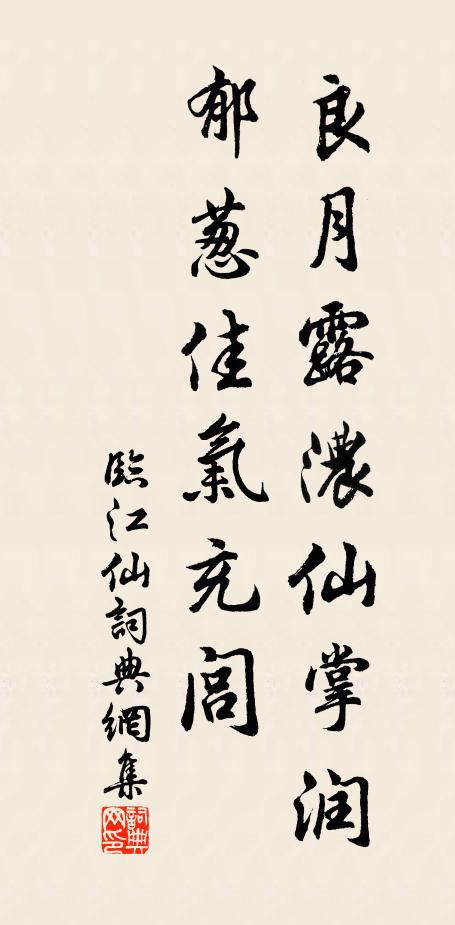 良月露濃仙掌润
郁葱佳氣充閭
臨江仙詞典網集
詞典網印